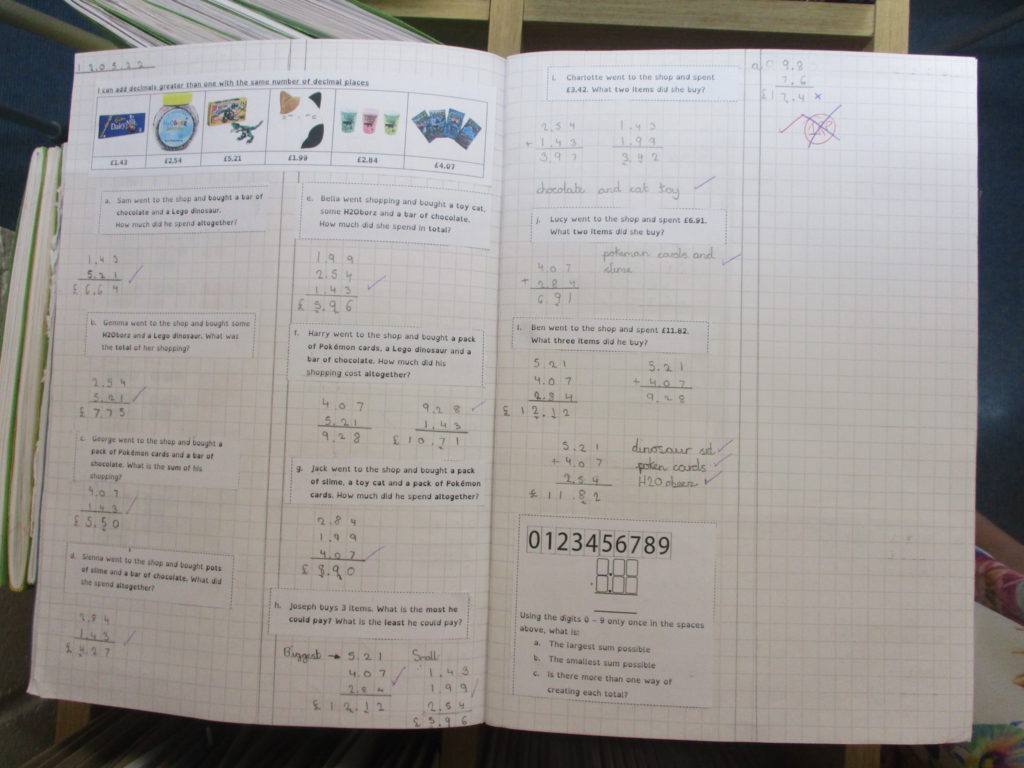 12.05.22
I can add decimals greater than one with the same number of decimal places
Dairy Milk
£1.43
£2.54
£5.21
£1.99
£2.84
£4.07
a. Sam went to the shop and bought a bar of
chocolate and a Lego dinosaur.
How much did he spend altogether?
1.43
5.21
£6.64
b. Gemma went to the shop and bought some
H2Oborz and a Lego dinosaur. What was
the total of her shopping?
2.54
5.21
£7.75
c. George went to the shop and bought a
pack of Pokémon cards and a bar of
chocolate. What is the sum of his
shopping?
4.07
1.43
£5.50
d. Sienna went to the shop and bought pots
of slime and a bar of chocolate. What did
she spend altogether?
2.84
1.43
£4.27
e. Bella went shopping and bought a toy cat,
some H2Oborz and a bar of chocolate.
How much did she spend in total?
1.99
2.54
1.43
£5.96
f. Harry went to the shop and bought a pack
of Pokémon cards, a Lego dinosaur and a
bar of chocolate. How much did his
shopping cost altogether?
4.07 9.28
5.21 1.43
9.28 £10.71
g. Jack went to the shop and bought a pack
of slime, a toy cat and a pack of Pokémon
cards. How much did he spend altogether?
2.84
1.99
4.07
£8.90
h. Joseph buys 3 items. What is the most he
could pay? What is the least he could pay?
Biggest → 5.21 Small
4.07 1.43
2.84 1.99
£12.12 2.54
£5.96
i. Charlotte went to the shop and spent
£3.42. What two items did she buy?
2.54 1.43
+1.43 1.99
3.97 3.42
chocolate and cat toy
j. Lucy went to the shop and spent £6.91.
What two items did she buy?
pokeman cards and
4.07 slime
+2.84
6.91
l. Ben went to the shop and spent £11.82.
What three items did he buy?
5.21 5.21
4.07 +4.07
2.84 9.28
£12.12
5.21 dinosaur set
+4.07 poken cards
2.54 H2O oberz
£11.82
0123456789
Using the digits 0 - 9 only once in the spaces
above, what is:
a. The largest sum possible
b. The smallest sum possible
c. Is there more than one way of
creating each total?
a) 9.8
7.6
£17.4 x